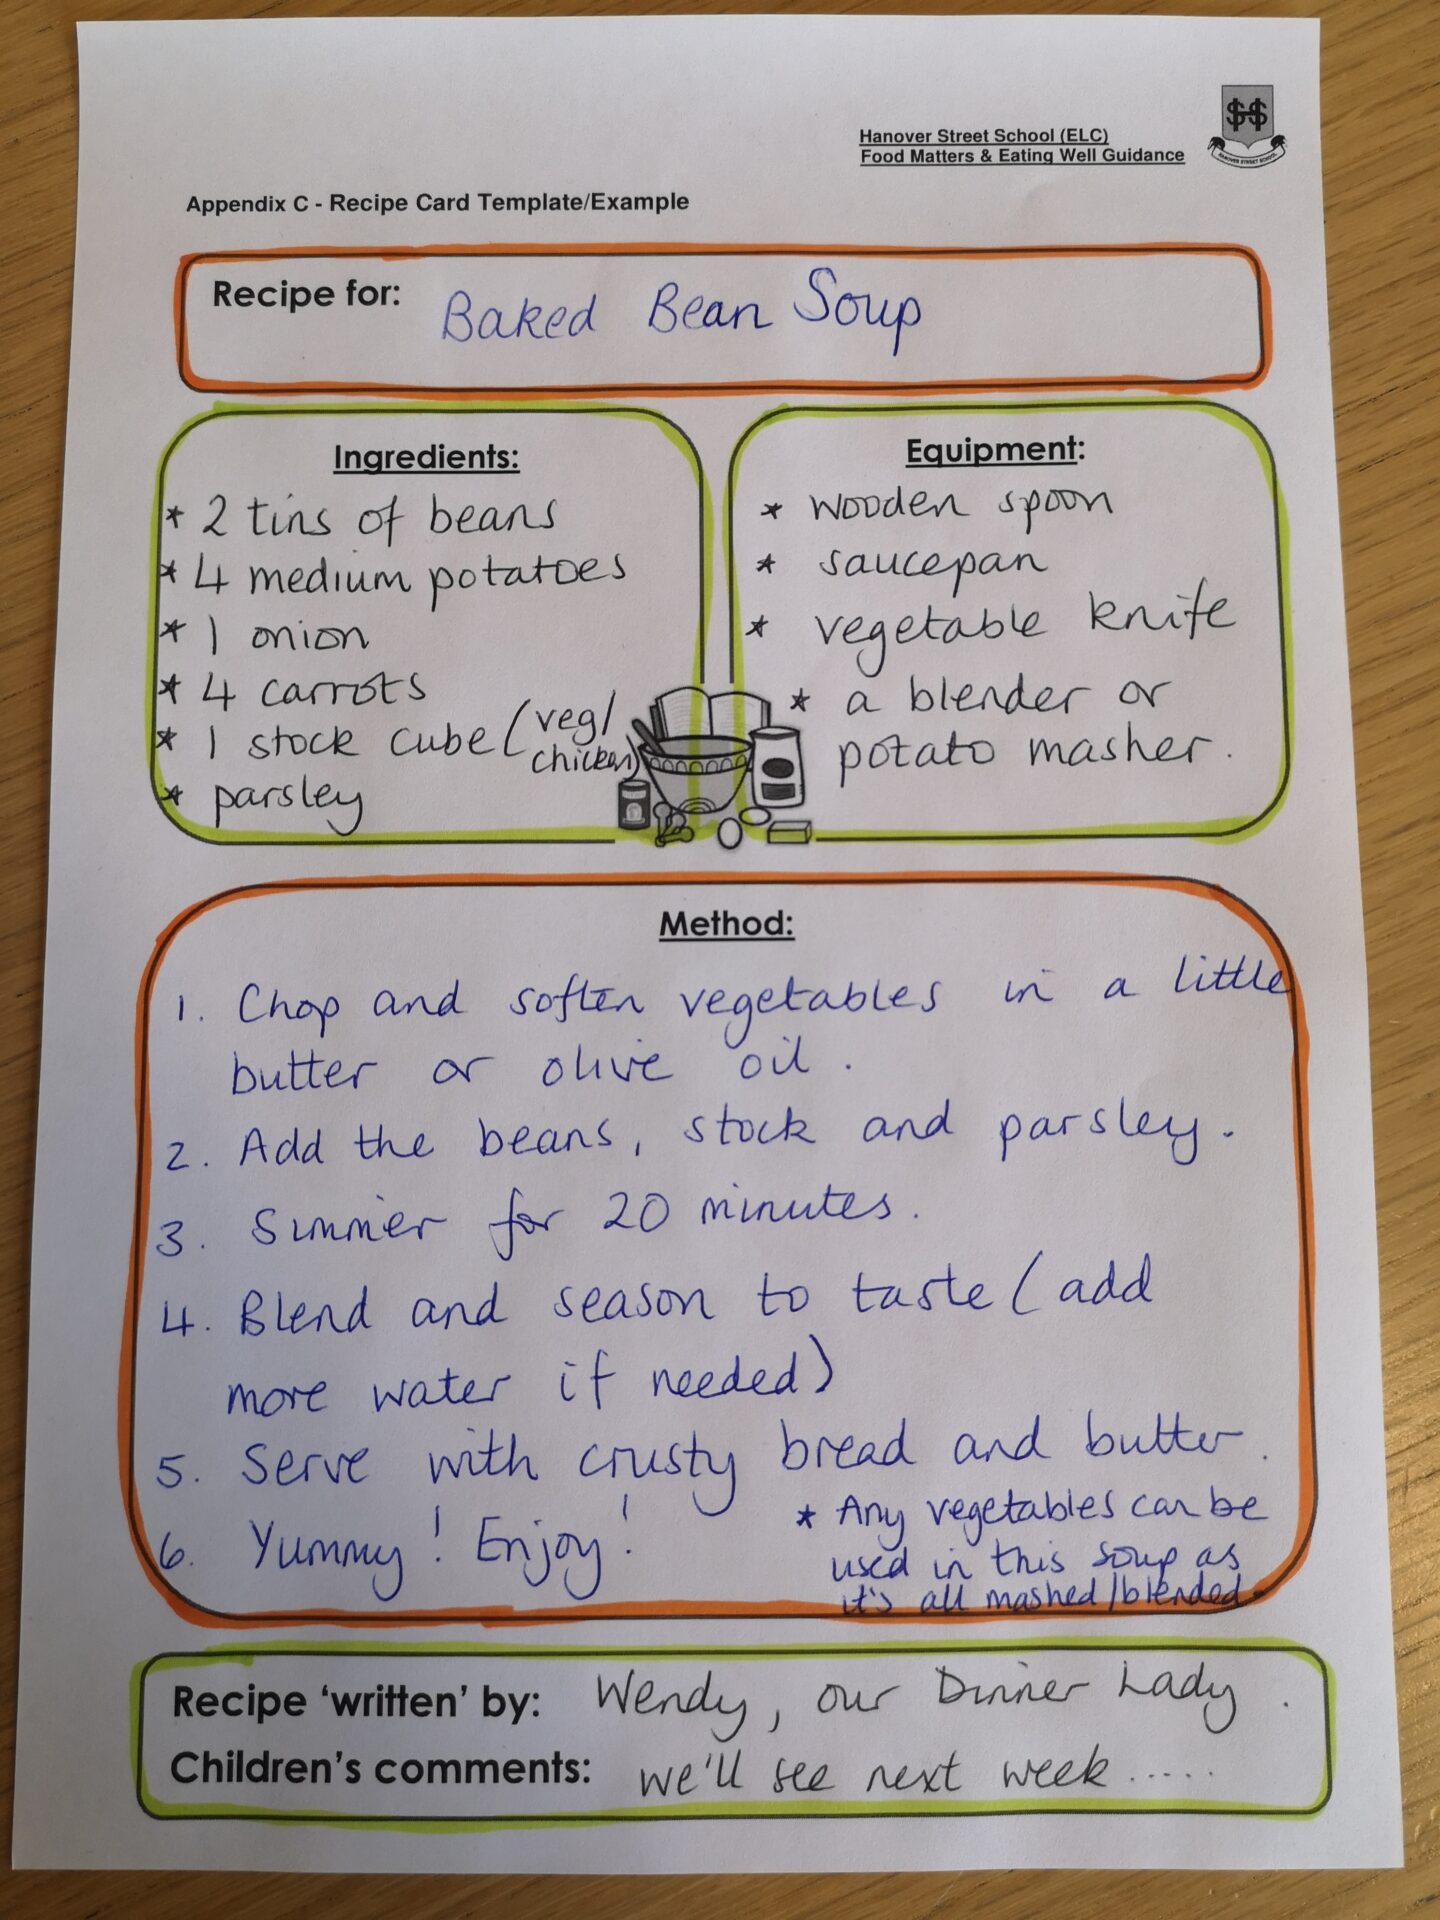 Hanover Street School (ELC)
Food Matters & Eating Well Guidance
HANOVER STREET SCHOOL
Appendix C - Recipe Card Template/Example
Recipe for: Baked Bean Soup
Ingredients:
* 2 tins of beans
* 4 medium potatoes
* 1 onion
* 4 carrots
* 1 stock cube (veg/
chicken)
* parsley
Equipment:
* wooden spoon
* saucepan
* vegetable knife
* a blender or
potato masher.
Method:
1. Chop and soften vegetables in a little
butter or olive oil.
2. Add the beans, stock and parsley.
3. Simmer for 20 minutes.
4. Blend and season to taste (add
more water if needed)
5. Serve with crusty bread and butter.
6. Yummy! Enjoy!
* Any vegetables can be
used in this soup as
it's all mashed/blended.
Recipe 'written' by: Wendy, our Dinner Lady.
Children's comments: we'll see next week.....